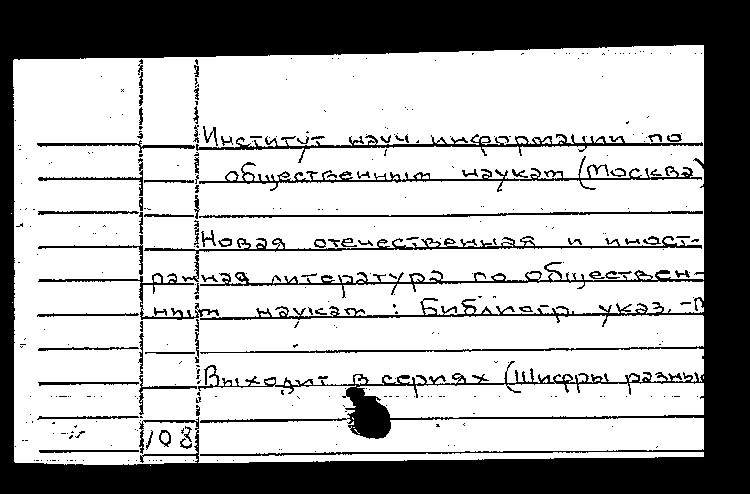 Институт науч. информации по
общественным наукам (Москва)
Новая отечественная и иност-
ранная литература по обществен-
ным наукам : Библиогр. указ. -
Выходит в сериях (Шифры разны
108